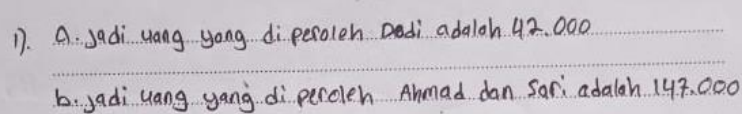 1). a. Jadi uang yang di peroleh Dodi adalah 42.000
b. Jadi uang yang di peroleh Ahmad dan Sari adalah 147.000